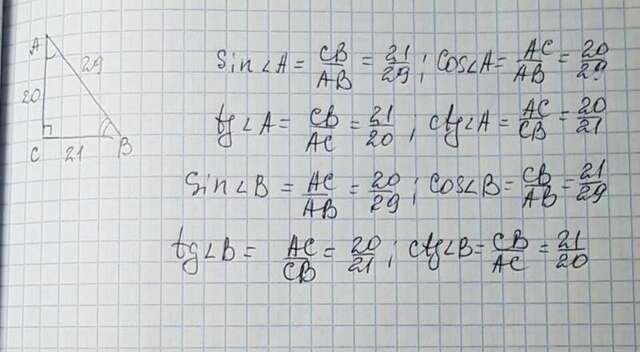 A
29
20
C 21 B
Sin∠A = CB/AB = 21/29 ; Cos∠A = AC/AB = 20/29
tg∠A = CB/AC = 21/20 ; ctg∠A = AC/CB = 20/21
Sin∠B = AC/AB = 20/29 ; Cos∠B = CB/AB = 21/29
tg∠B = AC/CB = 20/21 ; ctg∠B = CB/AC = 21/20